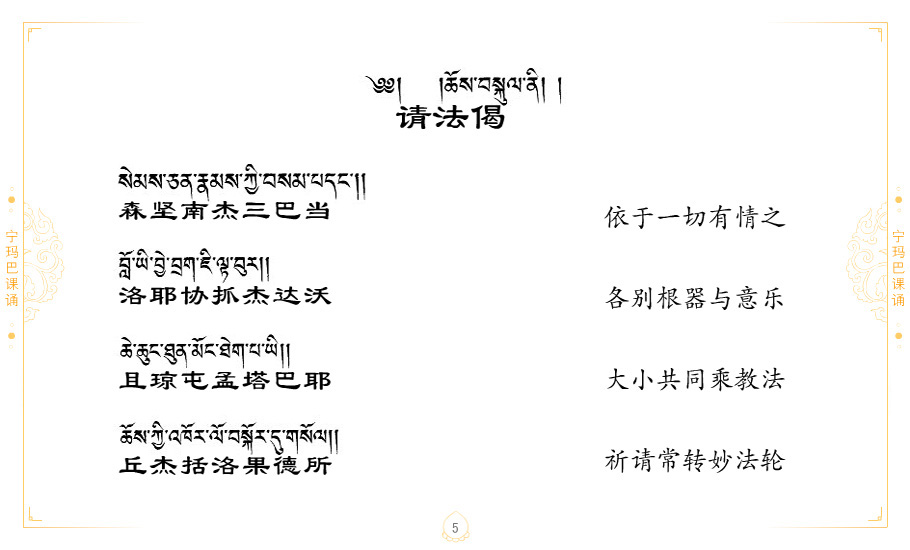 ༄༅། །ཆོས་བསྐུལ་ནི། །
请法偈
སེམས་ཅན་རྣམས་ཀྱི་བསམ་པ་དང་།།
森坚南杰三巴当
依于一切有情之
བློ་ཡི་བྱེ་བྲག་ཇི་ལྟ་བུར།།
洛耶协抓杰达沃
各别根器与意乐
ཆེ་ཆུང་ཐུན་མོང་ཐེག་པ་ཡི།།
且琼屯孟塔巴耶
大小共同乘教法
ཆོས་ཀྱི་འཁོར་ལོ་བསྐོར་དུ་གསོལ།།
丘杰括洛果德所
祈请常转妙法轮
宁玛巴课诵
宁玛巴课诵
5